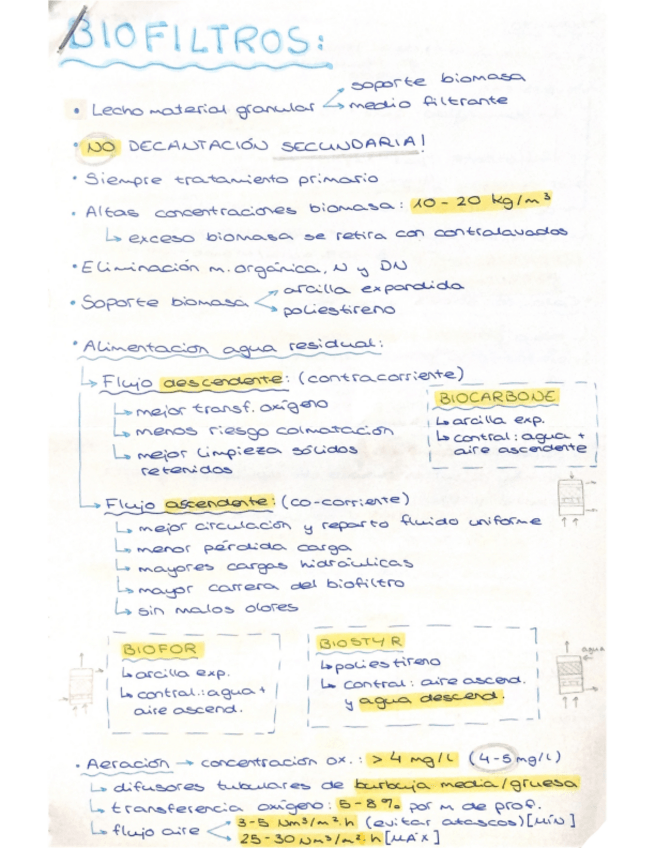 BIOFILTROS:
soporte biomasa
• Lecho material granular
medio filtrante
• NO DECANTACIÓN SECUNDARIA!
• Siempre tratamiento primario
• Altas concentraciones biomasa: 10-20 kg/m³
exceso biomasa se retira con contralavados
• Eliminación m. orgánica, N y DN
arcilla expandida
• Soporte biomasa
poliestireno
• Alimentación agua residual:
Flujo descendente: (contracorriente)
mejor transf. oxígeno
menos riesgo colmatación
mejor limpieza sólidos
retenidos
BIOCARBONE
arcilla exp.
contral: agua +
aire ascendente
Flujo ascendente: (co-corriente)
mejor circulación y reparto fluido uniforme
menor pérdida carga
mayores cargas hidráulicas
mayor carrera del biofiltro
sin malos olores
BIOFOR
arcilla exp.
contral.: agua +
aire ascend.
BIOSTYR
poliestireno
contral: aire ascend.
y agua descend.
agua
• Aeración → concentración ox.: > 4 mg/L (4-5 mg/L)
difusores tubulares de burbuja media/gruesa
transferencia oxígeno: 5-8% por m de prof.
3-5 Nm³/m².h (evitar atascos) [MÍN]
flujo aire
25-30 Nm³/m².h [MÁX]